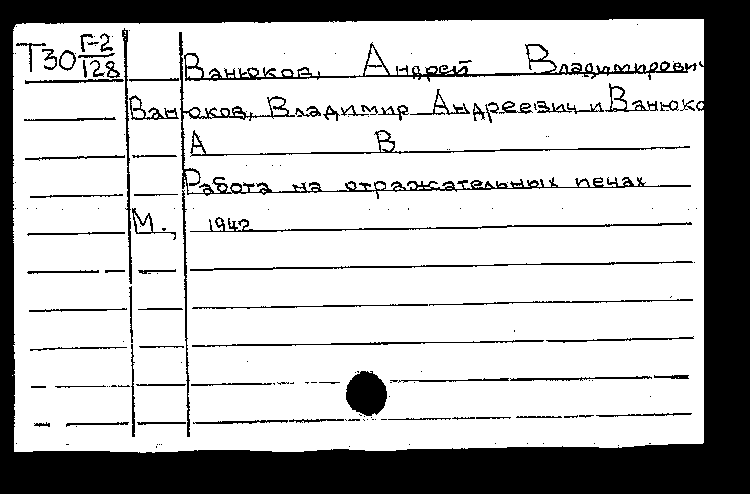 Т30 Г-2/Т28 Ванюков, Андрей Владимирович
Ванюков, Владимир Андреевич и Ванюко
А В
Работа на отражательных печах
М., 1942